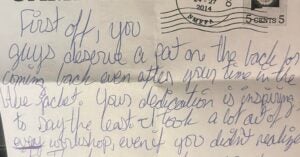 24-27
2014
5 CENTS 5
First off, you
guys deserve a pat on the back for
coming back even after your time in the
blue jacket. Your dedication is inspiring
to say the least. I took a lot out of
every workshop, even if you didn't realize